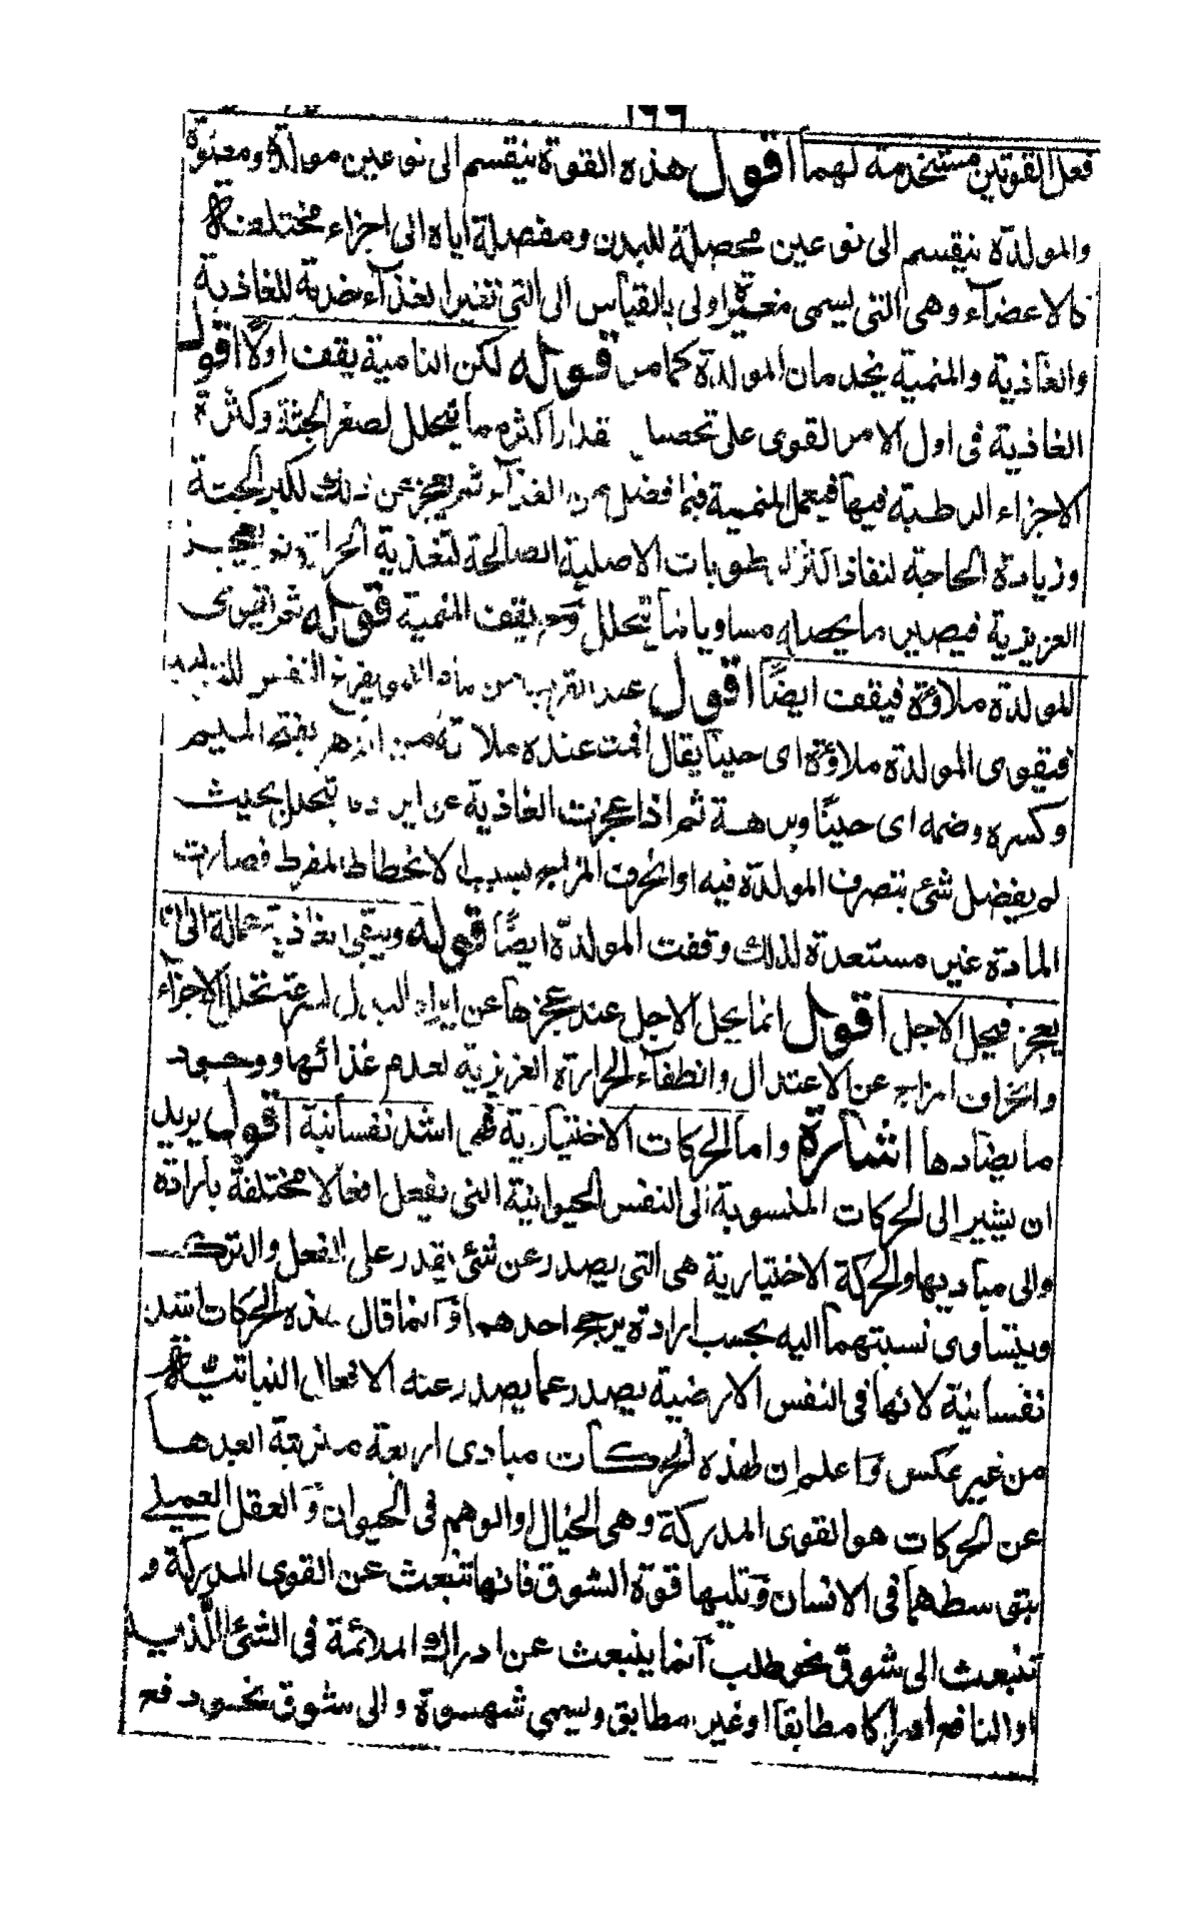 ١٦٦
فعل القوتين مستخدمة لهما اقول هذه القوة ينقسم الى نوعين مولدة ومغيرة
والمولدة ينقسم الى نوعين محصلة للبدن ومفصلة اياه الى اجزاء مختلفة
كالاعضاء وهى التى يسمى مغيرة اولى بالقياس الى التى تغير الغذاء خدمة للغاذية
والغاذية والمنمية يخدمان المولدة كما مر قوله لكن النامية يقف اولا اقول
الغاذية فى اول الامر لقوى على تحصيل مقدار اكثر مما يتحلل لصغر الجثة وكثرة
الاجزاء الرطبة فيها فيعمل المنمية فيما فضل من الغذاء ثم يعجز عن ذلك لكبر الجثة
وزيادة الحاجة لنفاذ اكثر الرطوبات الاصلية الصالحة لتغذية الحرارة
العزيزية فيصير ما يحصله مساويا لما يتحلل وح يقف المنمية قوله ثم تقوى
المولدة ملاوة فيقف ايضا اقول عند القرب من تمام النمو يفرغ النفس للتوليد
فيقوى المولدة ملاوة اى حينا يقال اقمت عنده ملاوة من الدهر بفتح الميم
وكسره وضمه اى حينا وبرهة ثم اذا عجزت الغاذية عن ايراد ما يتحلل بحيث
لم يفضل شئ يتصرف المولدة فيه او انحرفت المزاج بسبب الانحطاط المفرط فصارت
المادة غير مستعدة لذلك وقفت المولدة ايضا قوله ويبقى الغاذية عمالة الى ان
يعجز فيحل الاجل اقول انما يحل الاجل عند عجزها عن ايراد البدل لسرعة تحلل الاجزاء
وانحراف المزاج عن الاعتدال وانطفاء الحرارة الغريزية لعدم غذائها ووجود
ما يضادها اشارة واما الحركات الاختيارية فهى اشد نفسانية اقول يريد
ان يشير الى الحركات المنسوبة الى النفس الحيوانية التى يفعل افعالا مختلفة بارادة
والى مباديها والحركة الاختيارية هى التى يصدر عن شئ يقدر على الفعل والترك
ويتساوى نسبتهما اليه بحسب ارادة يرجح احدهما وانما قال هذه الحركات اشد
نفسانية لانها فى النفس الارضية يصدر عما يصدر عنه الافعال النباتية
من غير عكس واعلم ان لهذه الحركات مبادى اربعة مترتبة ابعدها
عن الحركات هو القوى المدركة وهى الخيال او الوهم فى الحيوان والعقل العملى
بتوسطهما فى الانسان وتليها قوة الشوق فانها تنبعث عن القوى المدركة و
تنبعث الى شوق نحو طلب انما ينبعث عن ادراك الملائمة فى الشئ اللذيذ
او النافع ادراكا مطابقا او غير مطابق ويسمى شهوة والى شوق نحو دفع